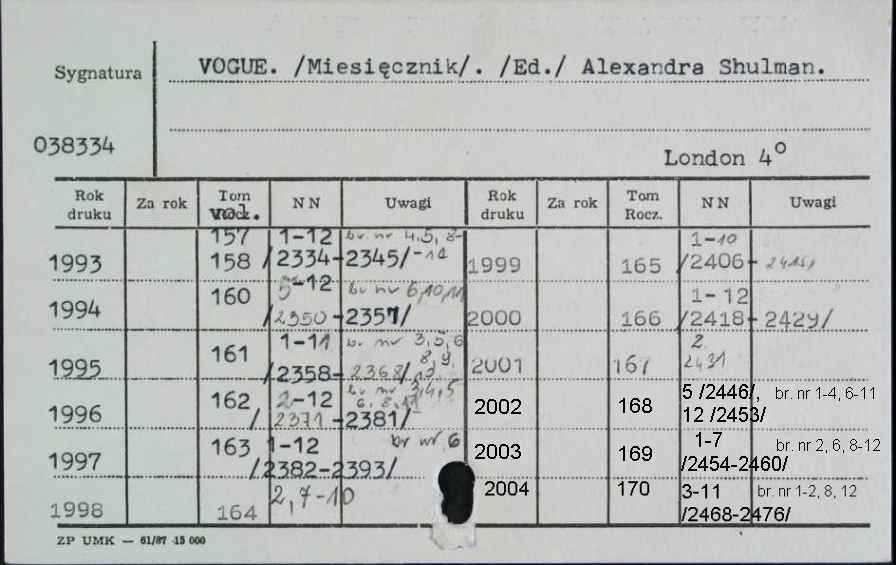 Sygnatura
VOGUE. /Miesięcznik/. /Ed./ Alexandra Shulman.
038334
London 4°
Rok druku Za rok Tom vol. NN Uwagi Rok druku Za rok Tom Rocz. NN Uwagi
1993 157 158 1-12 /2334-2345/ br. nr 4,5, 8-11
1994 160 5-12 /2350-2357/ br nr 6,10,11
1995 161 1-11 /2358-2368/ br. nr 3,5,6 8,9, 12
1996 162 2-12 /2371-2381/ br nr 3,4,5 6, 8, 11
1997 163 1-12 /2382-2393/ br nr 6
1998 164 2,7-10
1999 165 1-10 /2406-
2000 166 1-12 /2418-2429/
2001 167 2 2431
2002 168 5 /2446/, 12 /2453/ br. nr 1-4, 6-11
2003 169 1-7 /2454-2460/ br. nr 2, 6, 8-12
2004 170 3-11 /2468-2476/ br. nr 1-2, 8, 12
ZP UMK — 61/87 15 000